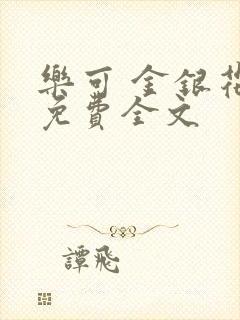 樂可 金銀花
免費全文
譚飛